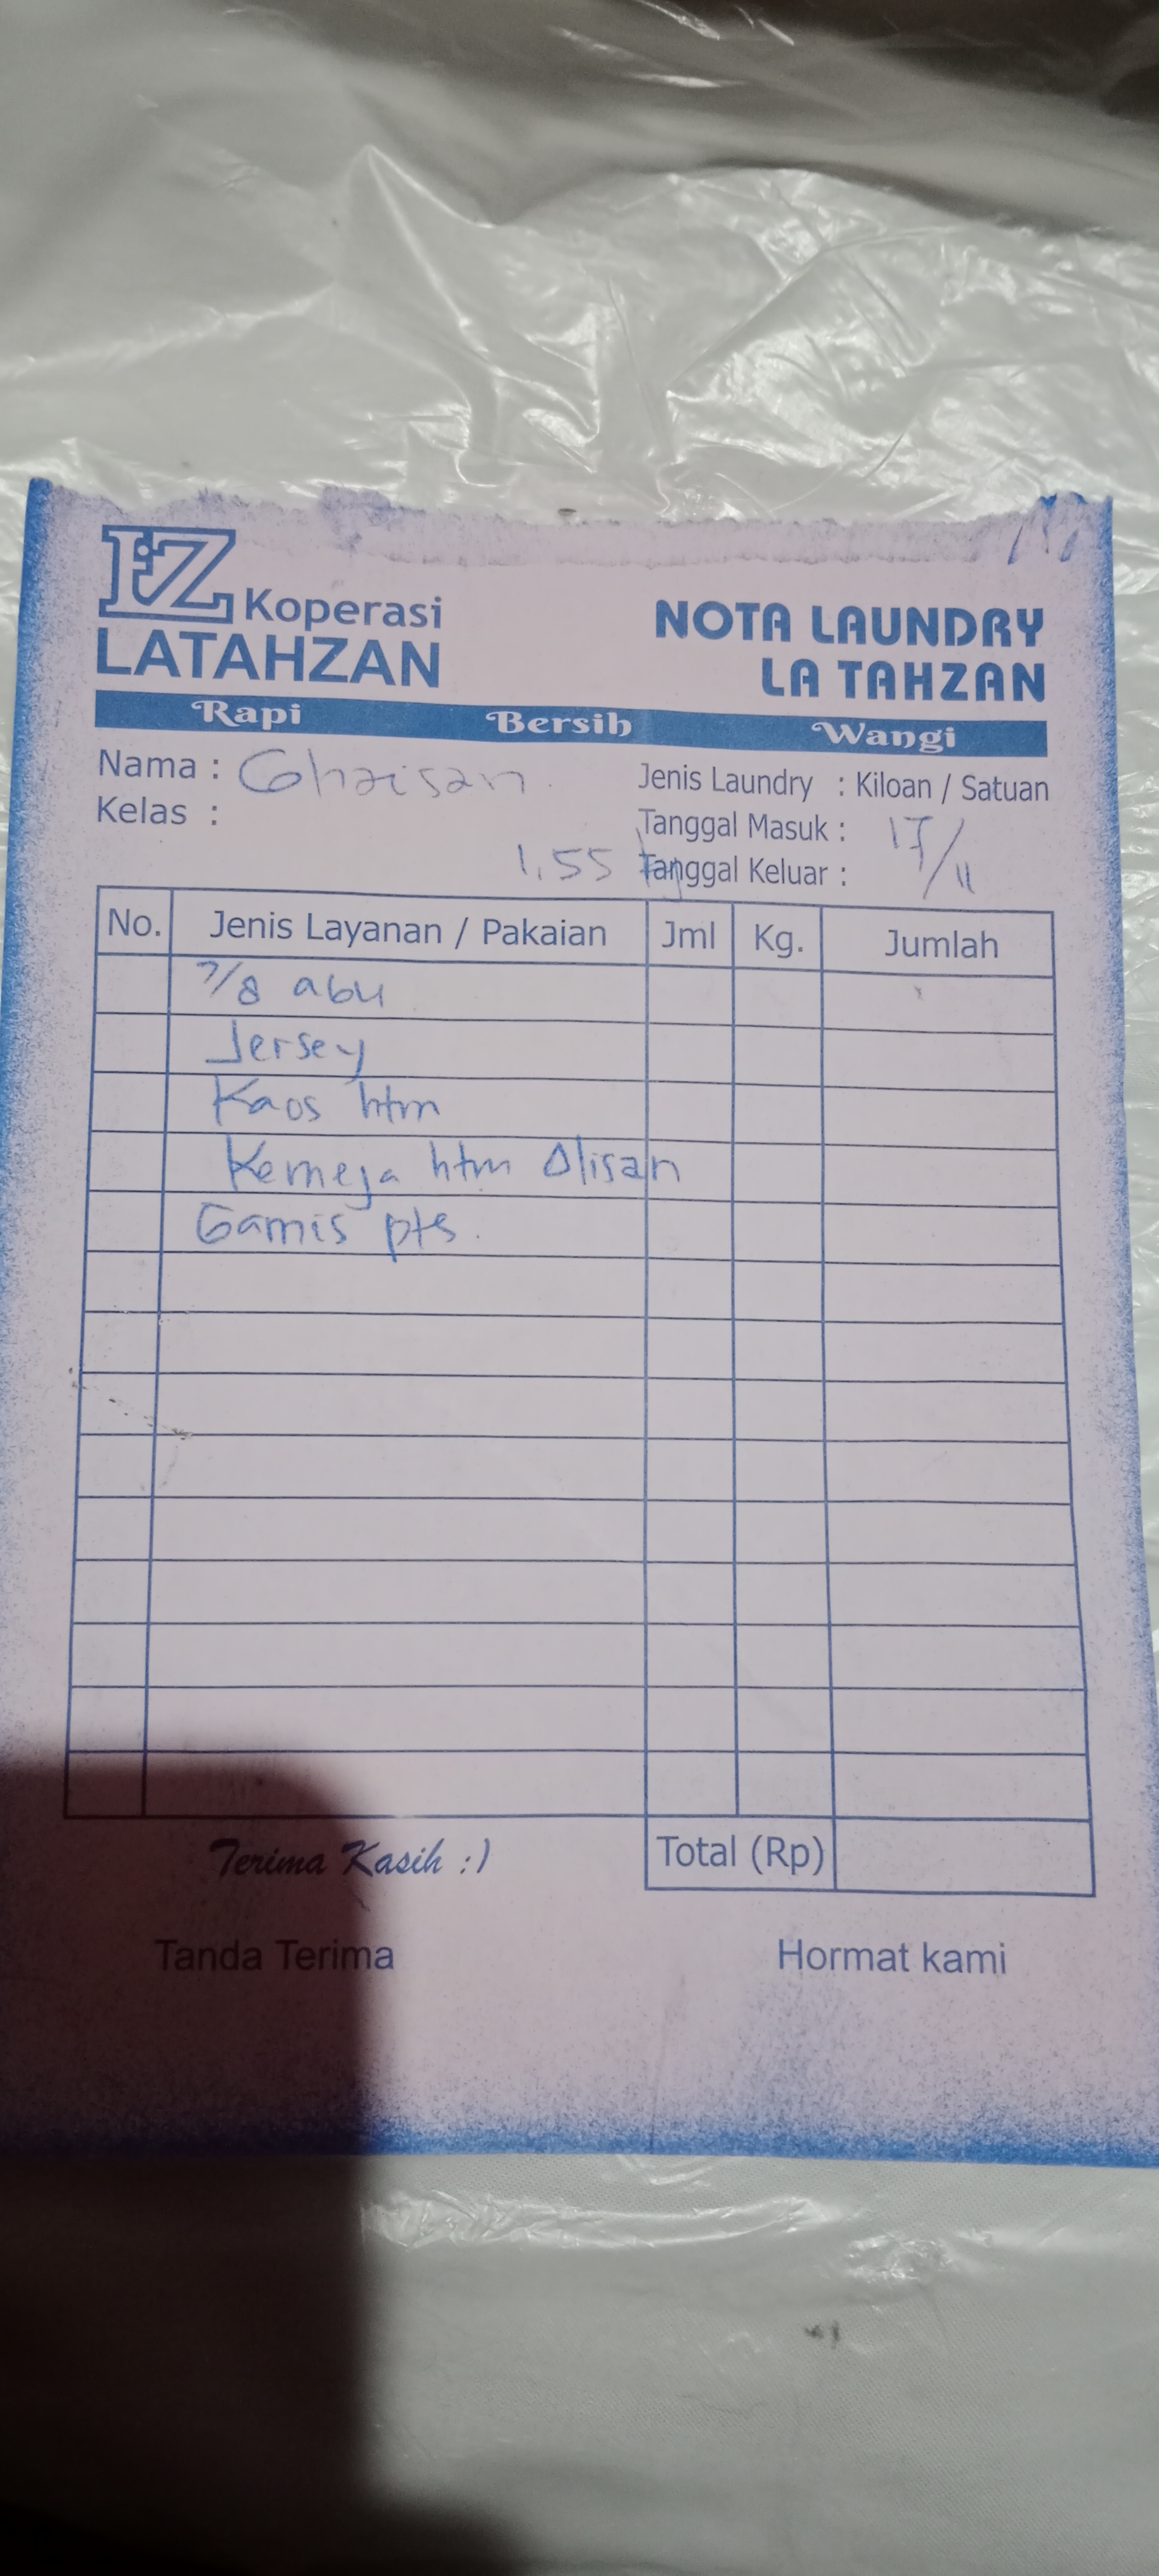 Koperasi
LATAHZAN
NOTA LAUNDRY
LA TAHZAN
Rapi Bersih Wangi
Nama : Ghaisan
Kelas :
Jenis Laundry : Kiloan / Satuan
Tanggal Masuk : 17/11
1,55 kg Tanggal Keluar :
No. Jenis Layanan / Pakaian Jml Kg. Jumlah
7/8 abu
Jersey
Kaos htm
Kemeja htm Olisan
Gamis pts.
Terima Kasih :) Total (Rp)
Tanda Terima Hormat kami